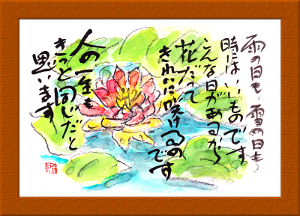 雨の日も、雪の日も
時にはいいものです
こんな日があるから
花だって
きれいに咲けるのです
人の一生も
きっと同じだと
思います